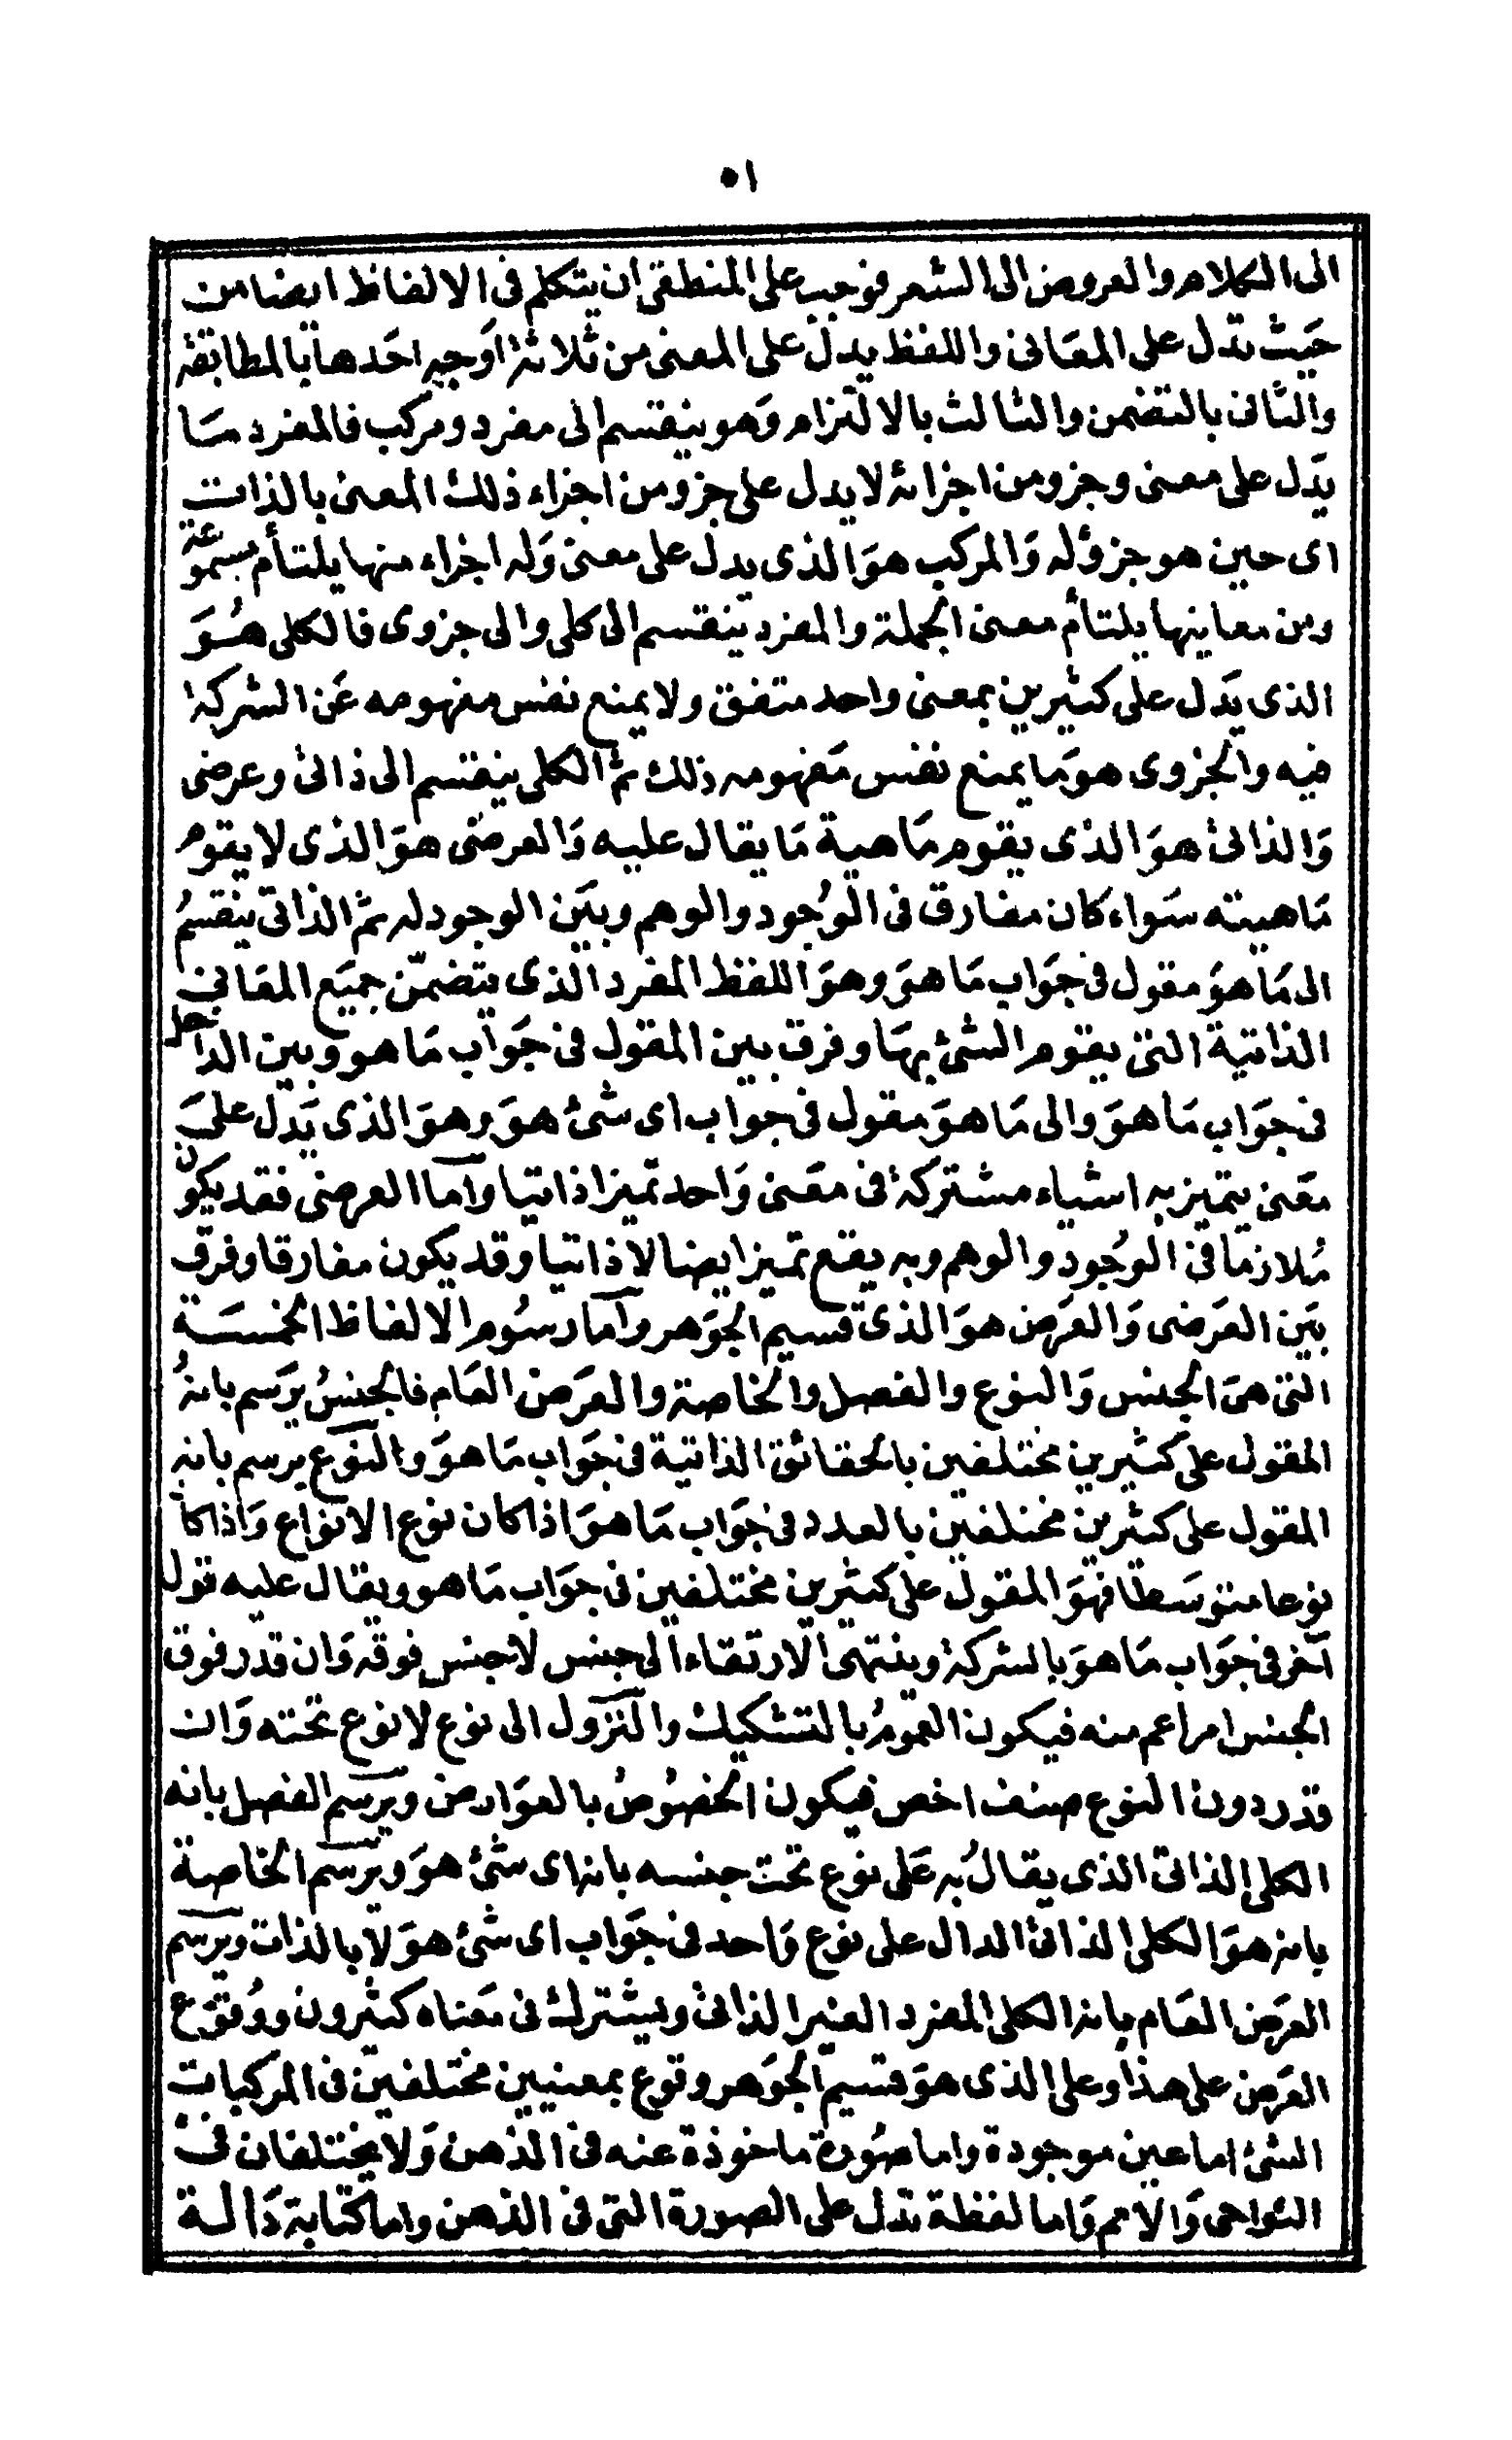 ٥١
الى الكلام والعروض الى الشعر فوجب على المنطقى ان يتكلم فى الالفاظ ايضا من
حَيث تدل على المعَانى واللفظ يدل على المعنى من ثلاثة اَوجه احَدها بالمطابقة
والثانى بالتضمن والثالث بالالتزام وَهو ينقسم الى مفرد ومركب فالمفرد مَا
يدَل على معنى وجزو من اجزائه لا يدل على جزو من اجزاء ذلك المعنى بالذات
اى حين هو جزؤله وَالمركب هوَ الذى يدل على معنى وَله اجزاء منها يلتأم مسموعة
ومن معاينها يلتأم معنى الجملة والمفرد ينقسم الى كلى والى جزوى فالكلى هُوَ
الذى يَدل على كثيرين بمعنى واحد متفق ولا يمنع نفس مفهومه عَن الشركة
فيه والجزوى هوَ ما يمنع نفس مَفهومه ذلك ثم الكلى ينقسم الى ذاتى وعرضى
وَالذاتى هوَ الذى يقوم مَاهية مَا يقال عليه وَالعرضى هوَ الذى لا يقوم
مَاهيته سَواء كان مفارق فى الوُجود والوهم وبيَن الوجود له ثمَّ الذاتى ينقسمُ
الى مَا هوَ مقول فى جوَاب مَا هوَ وهوَ اللفظ المفرد الذى يتضمّن جميَع المعَانى
الذاتية التى يقوم الشئ بهَا وفرق بين المقول فى جوَاب مَا هو وبين الداخل
فى جوَاب مَا هوَ والى مَا هوَ مقول فى جواب اى شئ هوَ وهوَ الذى يَدل علىَ
معَنى يتميز به اشياء مشتركة فى معَنى وَاحد تميزا ذاتيا وآما العرضى فقد يكون
مُلازما فى الوُجود والوهم وبه يقع تميز ايضا لا ذاتيا وقد يكون مفارقا وفرق
بيَن العَرضى وَالعَرض هوَ الذى قسيم الجوَهر وآما رسُوم الالفاظ الخمسَة
التى هىَ الجنس وَالنوع والفصل والخاصة والعَرَض العَام فالجنسُ يرَسم بانهُ
المقول على كثيرين مختلفين بالحقائق الذاتية فى جوَاب مَا هوَ والنوَع يرسم بانه
المقول على كثيرين مختلفين بالعدد فى جوَاب مَا هوَ اذا كان نوع الانوَاع وَاذا كان
نوعا متوسَطا فهوَ المقول على كثيرين مختلفين فى جوَاب مَا هو ويقال عليه قول
آخر فى جوَاب مَا هوَ بالشركة وينتهى الارتقاء الى جنس لا جنس فوقه وَان قدر فوق
الجنس امر اعم منه فيكون العمومُ بالتشكيك والنَزول الى نوع لا نوع تحته وَان
قدر دون النوع صنف اخص فيكون الخصُوصُ بالعوَارض ويرَسم الفصل بانه
الكلى الذاتى الذى يقالُ به عَلى نوع تحت جنسه بانه اى شئ هوَ ويرَسم الخاصة
بانه هوَ الكلى الذاتى الدال على نوع وَاحد فى جوَاب اى شئ هوَ لا بالذات ويرسم
العرَض العَام بانه الكلى المفرد الغير الذاتى ويشترك فى مَعناه كثيرون ووُقوَع
العرَض على هذا وعلى الذى هوَ قسيم الجوَهر وقوع بمعنيين مختلفين فى المركبات
الشئ اما عين موجودة واما صُورة ماخوذة عنه فى الذهن وَلا يختلفان فى
النواحى وَالامم وَاما لفظة تدل على الصورة التى فى الذهن واما كتابة دَالة